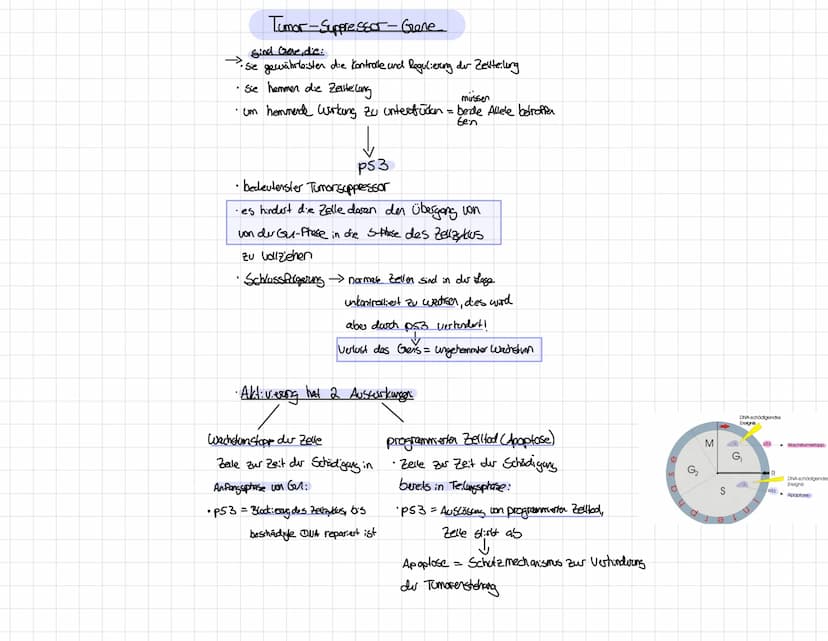 Tumor-Suppressor-Gene
sind Gene, die:
→ · sie gewährleisten die Kontrolle und Regulierung der Zellteilung
· sie hemmen die Zellteilung
· um hemmende Wirkung zu unterdrücken = müssen beide Allele betroffen sein
p53
· bedeutenster Tumorsuppressor
· es hindert die Zelle daran den Übergang von
von der G1-Phase in die S-Phase des Zellzyklus
zu vollziehen
· Schlussfolgerung → normale Zellen sind in der Lage
unkontrolliert zu wachsen, dies wird
aber durch p53 verhindert!
Verlust des Gens = ungehemmter Wachstum
· Aktivierung hat 2 Auswirkungen
Wachstumsstopp der Zelle
Zelle zur Zeit der Schädigung in
Anfangsphase von G1:
· p53 = Blockierung des Zellzyklus, bis
beschädigte DNA repariert ist
programmierter Zelltod (Apoptose)
· Zelle zur Zeit der Schädigung
bereits in Teilungsphase:
· p53 = Auslösung von programmierter Zelltod,
Zelle stirbt ab
Apoptose = Schutzmechanismus zur Verhinderung
der Tumorentstehung
DNA-schädigendes
Ereignis
M
G1
G2
S
R
Interphase
Wachstumsstopp
DNA-schädigendes
Ereignis
Apoptose